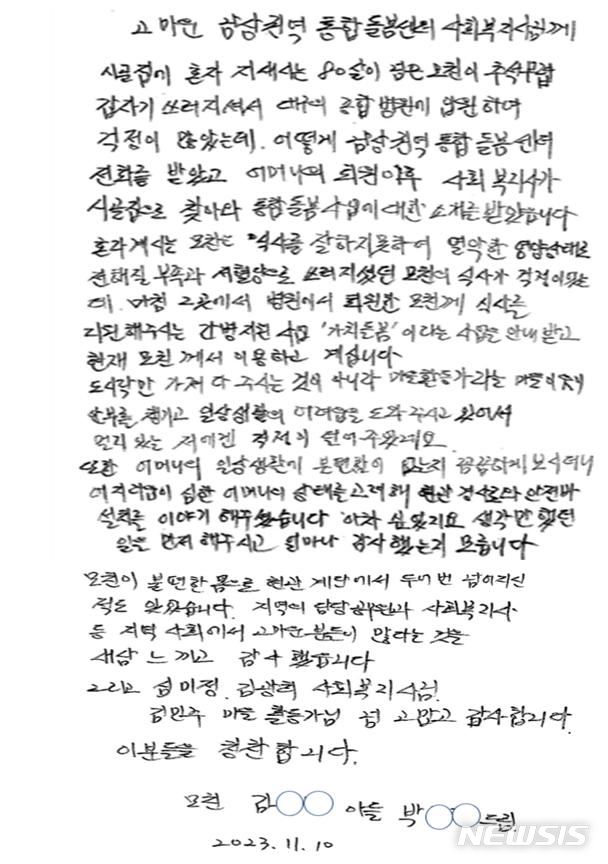 고마운 남남권역 통합돌봄센터 사회복지사님께
시골집에 혼자 지새시는 80살이 넘은 모친이 추석무렵
갑자기 쓰러지셔서 대구의 종합병원에 입원하여
걱정이 많았는데, 어떻게 남남권역 통합돌봄센터
전화를 받았고 어머니의 퇴원이후 사회복지사가
시골집으로 찾아와 통합돌봄사업에 대한 소개를 받았습니다
혼자계시는 모친은 식사를 잘하지못하여 열악한 영양상태로
전해질 부족과 저혈당으로 쓰러지셨던 모친의 식사가 걱정이었는
데, 마침 그곳에서 병원에서 퇴원한 모친께 식사를
지원해주시는 간병지원 사업 '가치돌봄'이라는 사업을 안내 받고
현재 모친께서 이용하고 계십니다
도시락만 가져다 주시는 것이 아니라 마을활동가라는 마을이웃이
안부를 챙기고 일상생활의 어려움을 도와주시고 있어서
멀리 있는 저에겐 걱정이 덜어주었지요
또한 어머니의 일상생활에 불편함이 없는지 꼼꼼하게 보시더니
어지러움이 심한 어머니의 상태를 고려해 현관 경사로와 안전바
설치를 이야기 해주셨습니다 아차 싶었지요 생각만 했던
일을 먼저 해주시고 얼마나 감사했는지 모릅니다
모친이 불편한 몸으로 현관 계단에서 두어번 넘어지신
적도 있었습니다. 지역의 담당공무원과 사회복지사
등 지역 사회에서 고마운 분들이 많다는 것을
새삼 느끼고 감사했습니다
그리고 섭미정, 김광희 사회복지사님
김민주 마을 활동가님 넘 고맙고 감사합니다.
이분들을 칭찬합니다.
모친 김○○ 아들 박○○드림
2023.11.10
NEWSIS